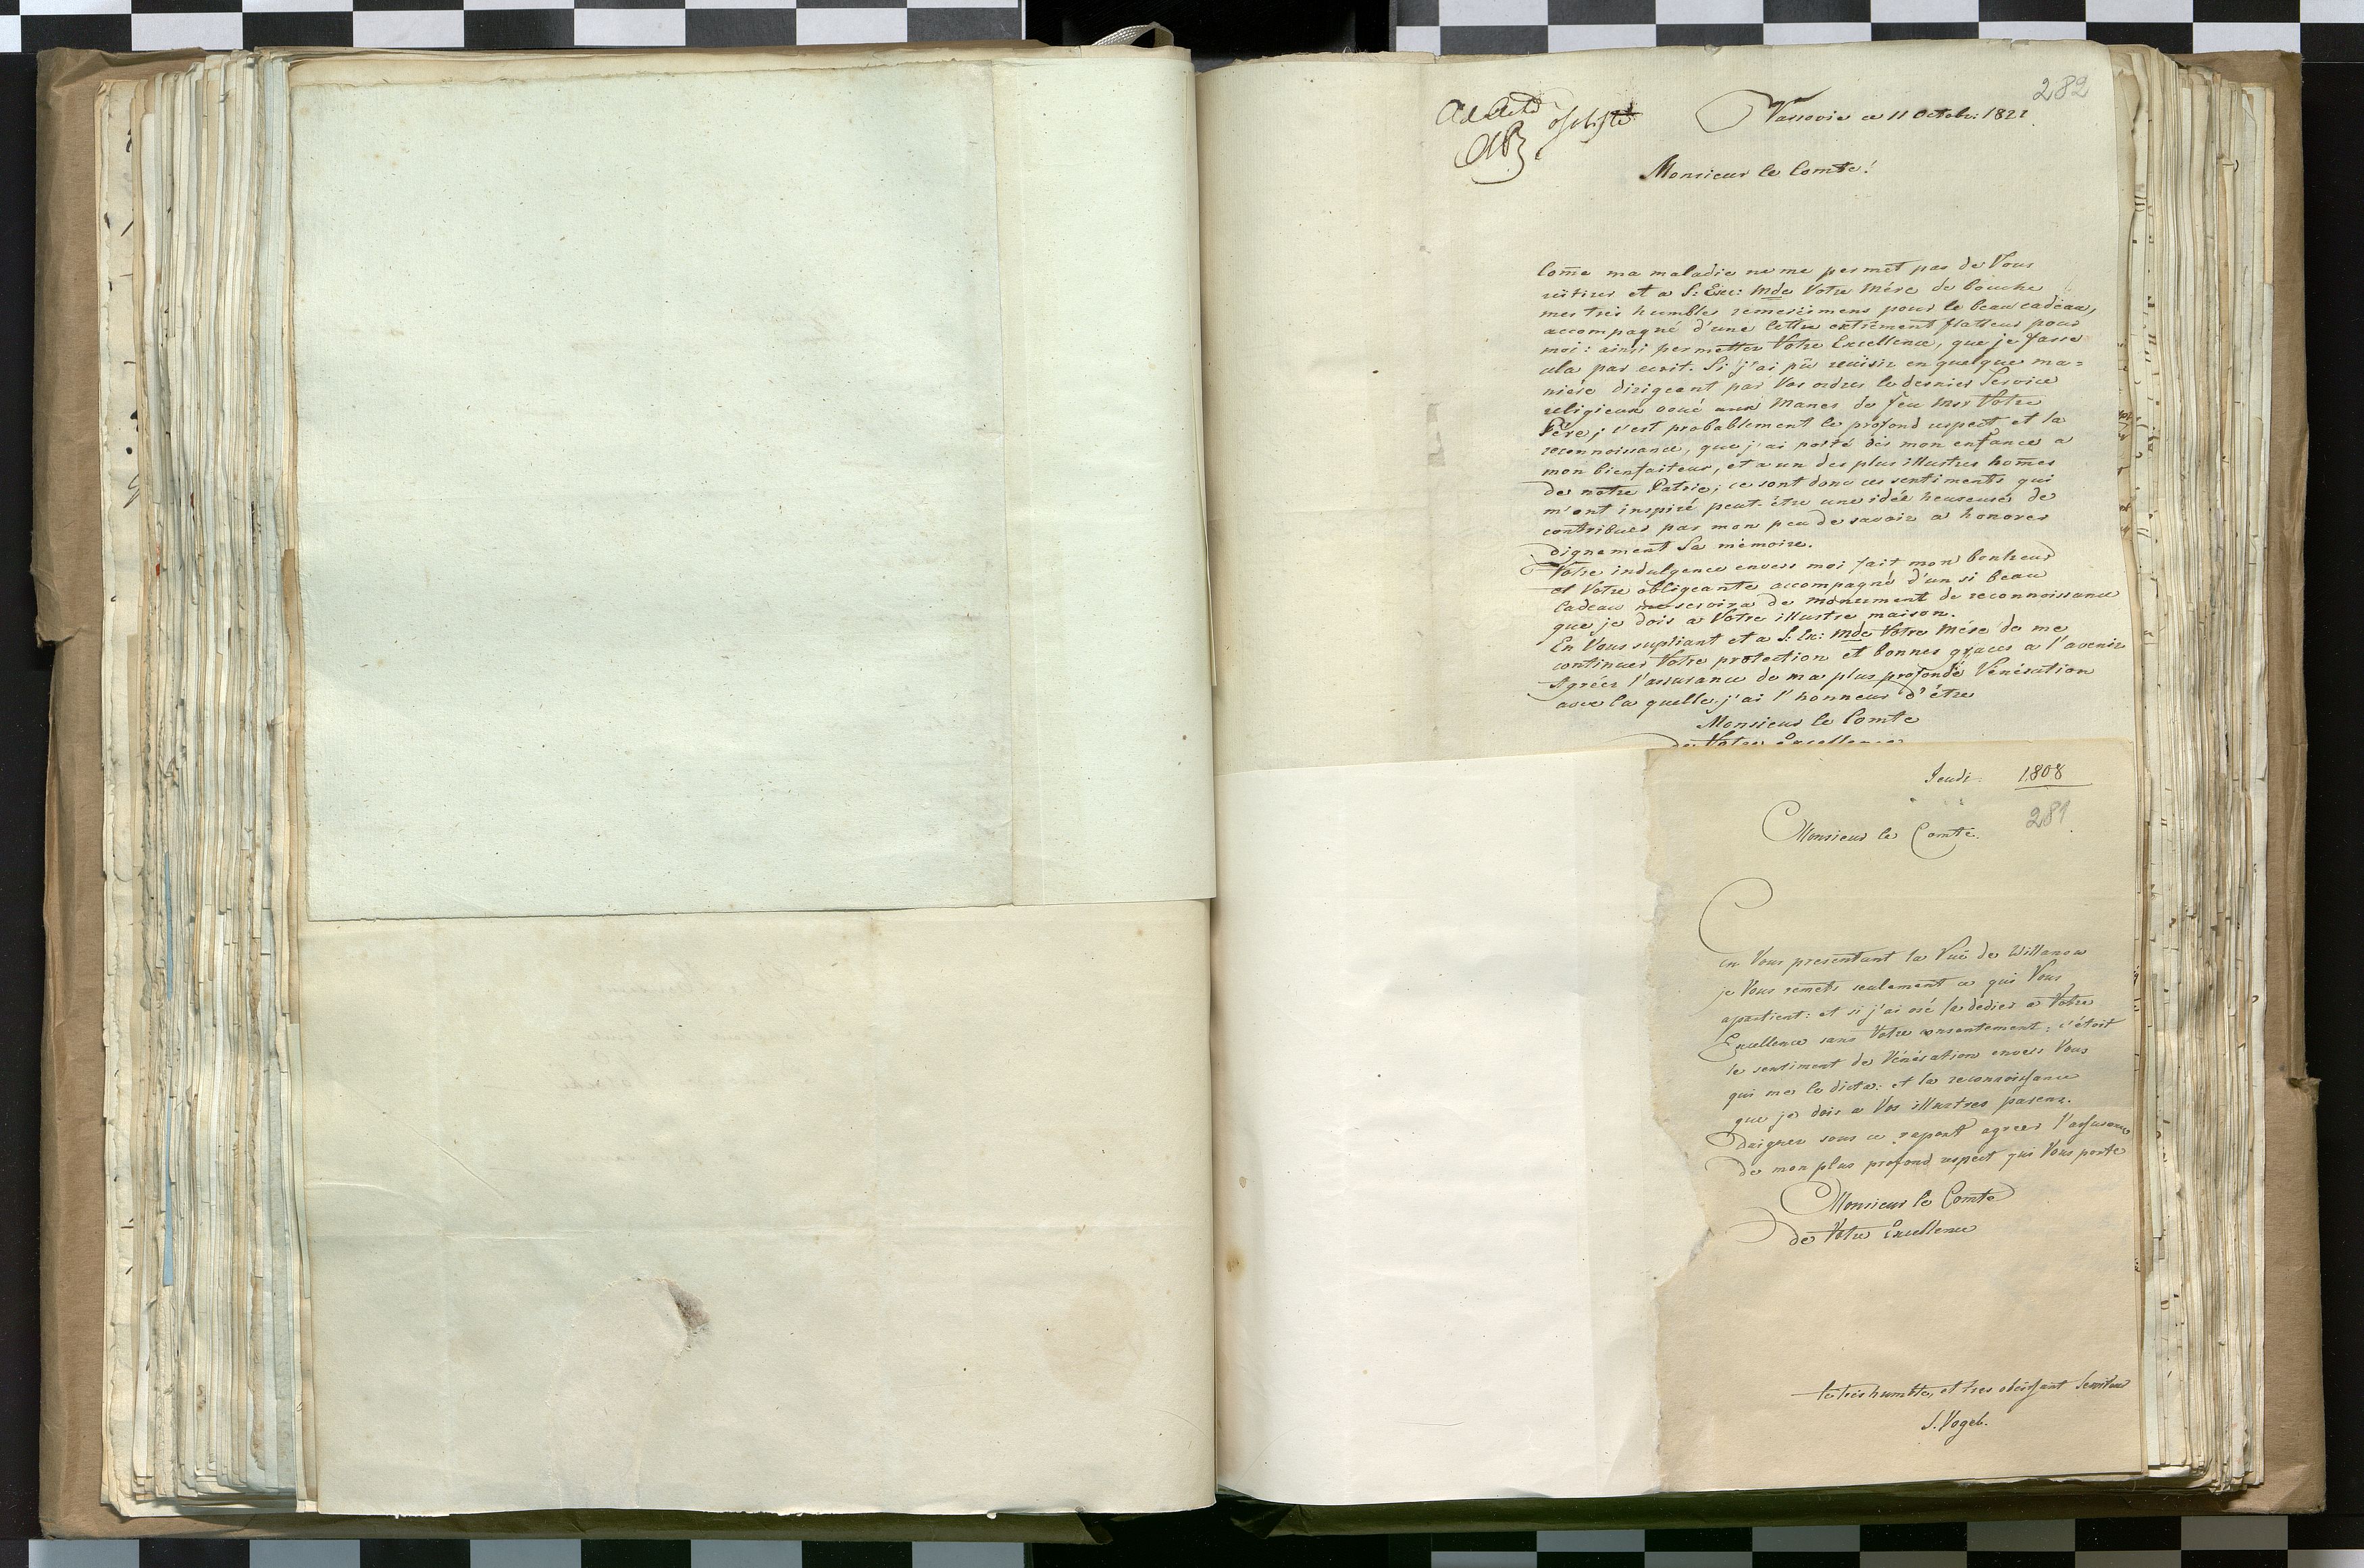 282
Ad Acta osobiste
AP
Varsovie ce 11 Octobr: 1822
Monsieur le Comte!
Com̄e ma maladie ne me permet pas de Vous
reïtirer et a S: Exc: Mde Votre Mére de bouche
mes trés humbles remercimens pour le beau cadeau,
accompagné d'une lettre extrément flatteur pour
moi: ainsi permetter Votre Excellence, que je fasse
cela par ecrit. Si j'ai pû reuisir en quelque ma=
niére dirigeant par Vos ordres le dernier Service
religieux voué aux Manes de feu Mr Votre
Pére; c'est probablement le profond respect et la
reconnoissance, que j'ai porté dés mon enfance a
mon bienfaiteur, et a un des plus illustres hom̄es
de notre Patrie; ce sont donc ces sentiments qui
m'ont inspiré peut-étre une idée heureuse de
contribuer par mon peu de savoir a honorer
dignement Sa mémoire.
Votre indulgence envers moi fait mon bonheur
et Votre obligeante accompagné d'un si beau
Cadeau me servira de monument de reconnoissance
que je dois a Votre illustre maison.
En Vous supliant et a S: Ex: Mde Votre Mére de me
continuer Votre protection et bonnes graces a l'avenir
Agréer l'assurance de ma plus profonde Vénération
avec la quelle j'ai l'honneur d'étre
Monsieur le Comte
de Votre Excellence
Jeudi 1808
281
Monsieur le Comte.
En Vous presentant la Vuë de Willanow
je Vous remets seulement ce qui Vous
apartient: et si j'ai osé la dédier a Votre
Excellence sans Votre consentement; c'étoit
le sentiment de Vénération envers Vous
qui me le dicta: et la reconnoissance
que je dois a Vos illustres parens.
Daigner sous ce raport agreer l'assurance
de mon plus profond respect qui Vous porte
Monsieur le Comte
de Votre Excellence
le trés humble, et tres obeissant Serviteur
S. Vogel.